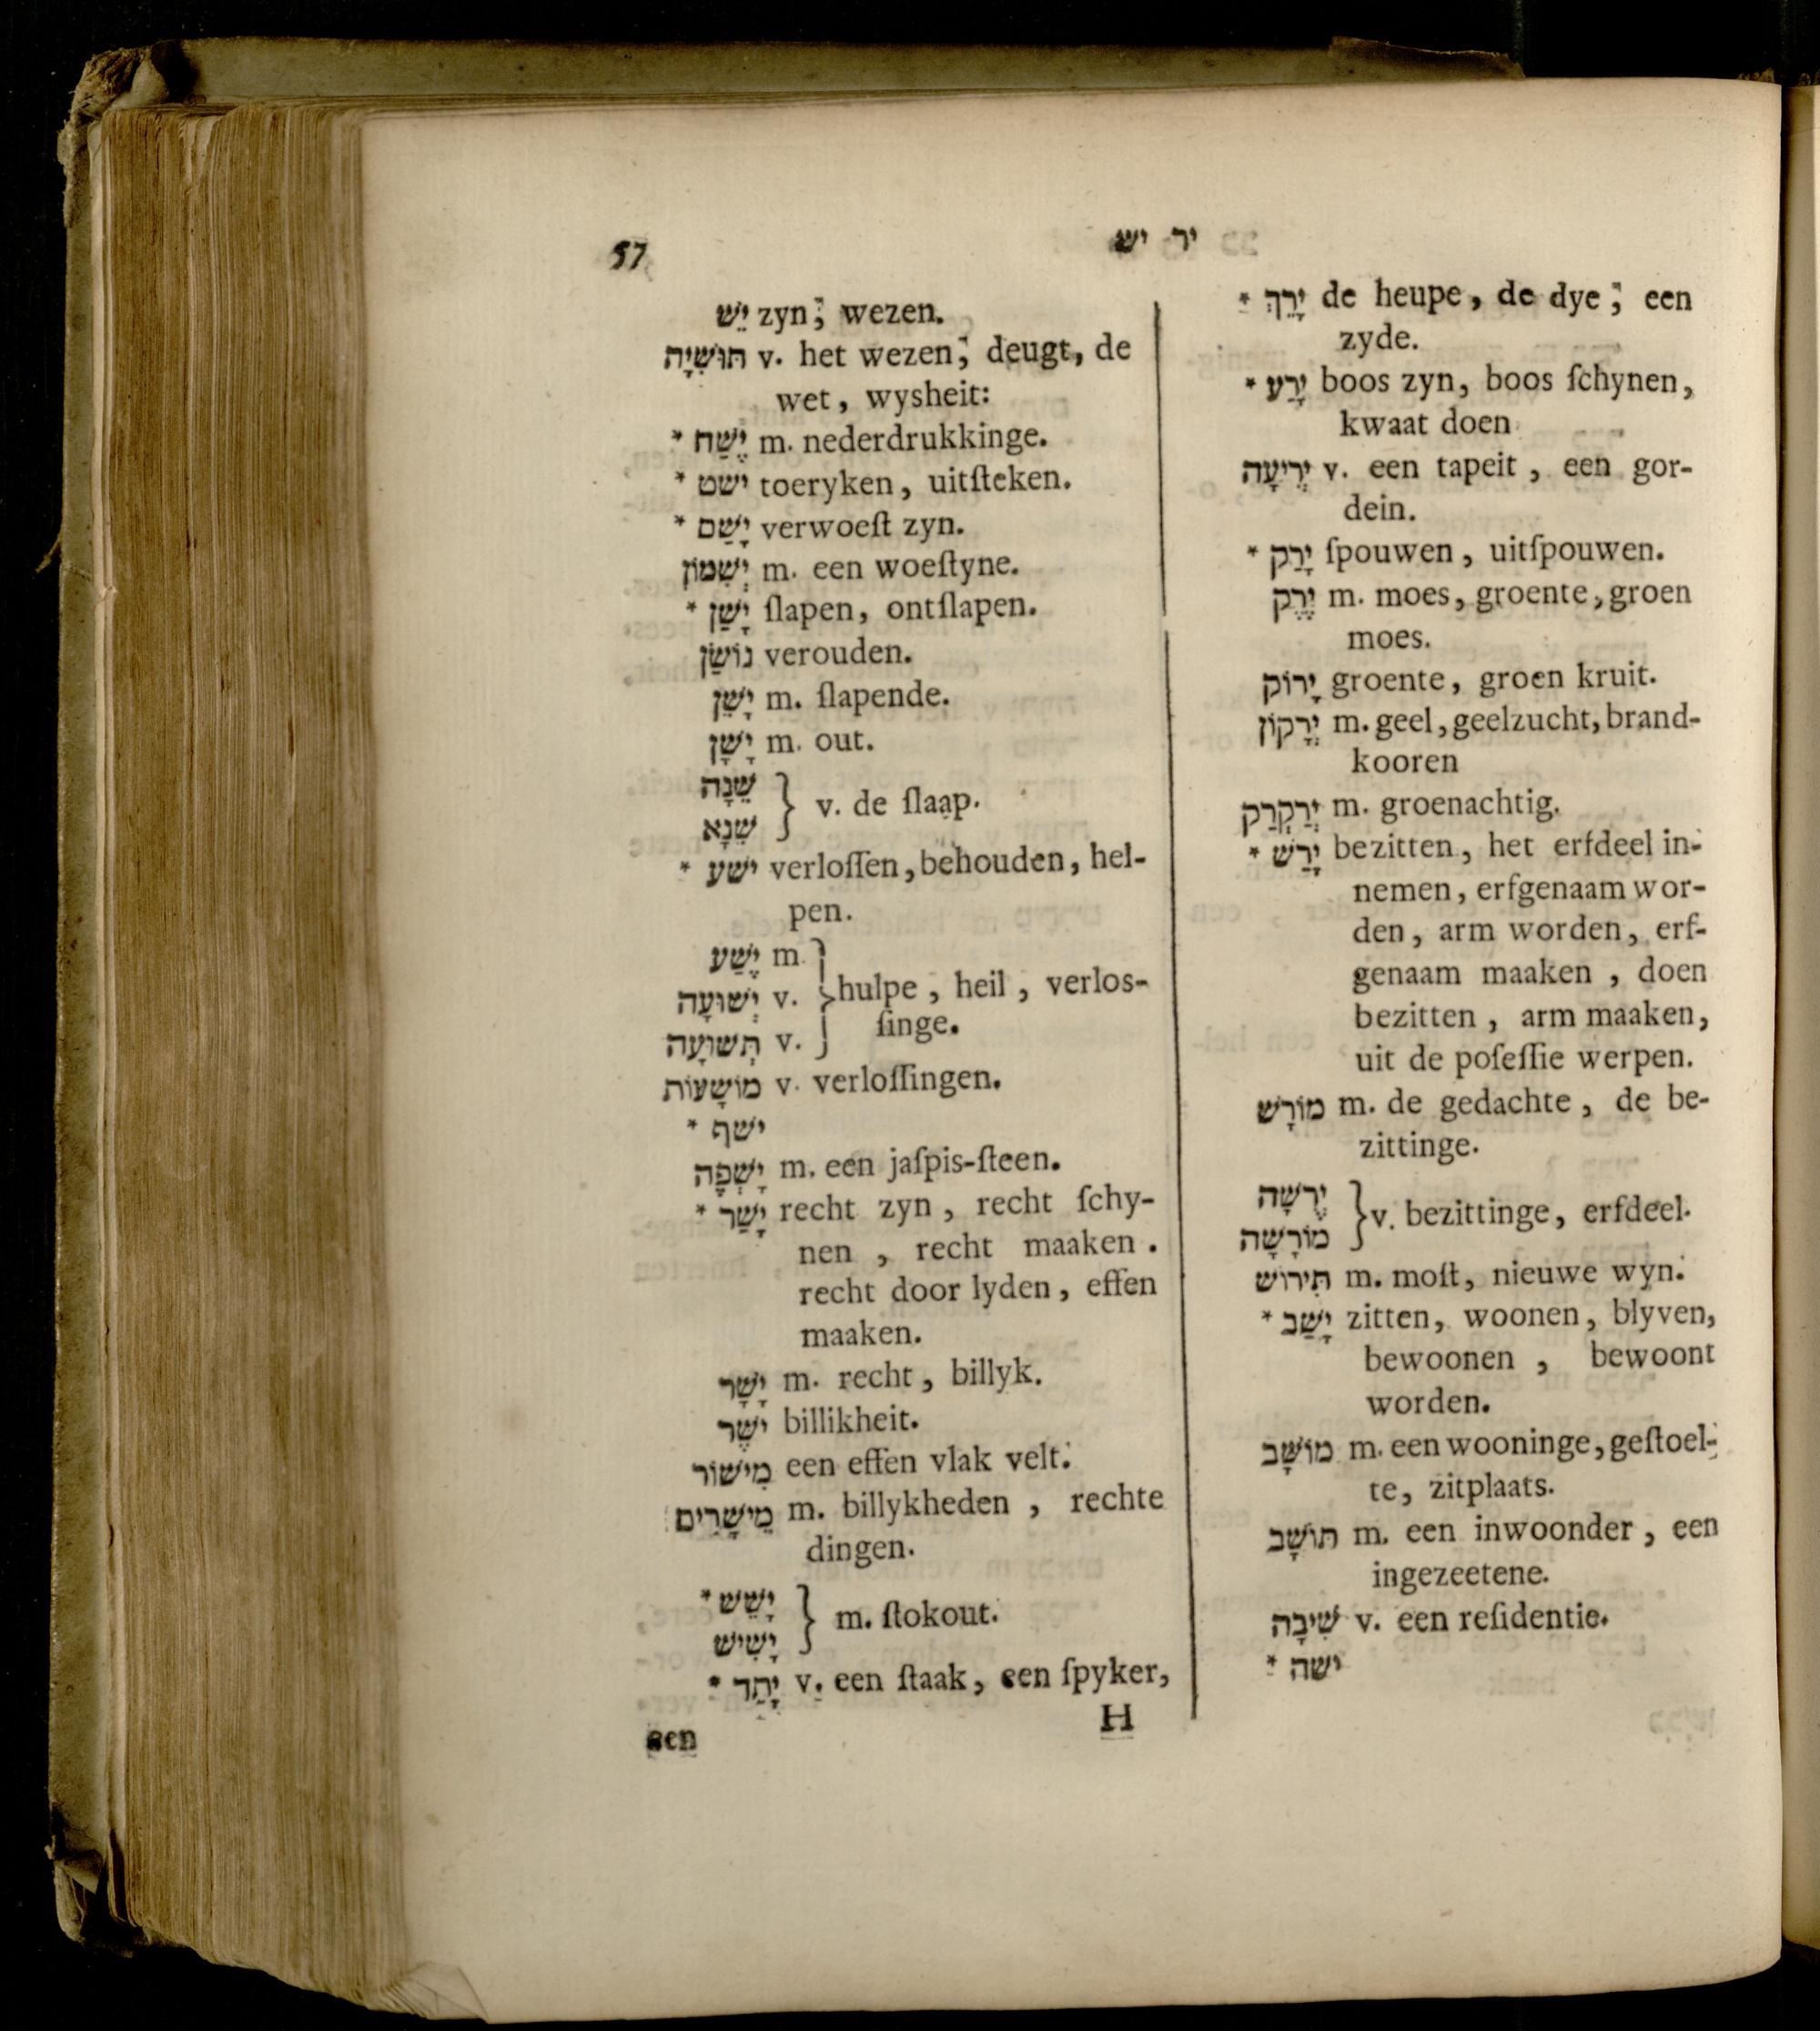 57
יר יש
* יָרֵךְ de heupe, de dye; een
zyde.
* יָרַע boos zyn, boos ſchynen,
kwaat doen
יְרִיעָה v. een tapeit, een gor-
dein.
* יָרַק ſpouwen, uitſpouwen.
יֶרֶק m. moes, groente, groen
moes.
יָרוֹק groente, groen kruit.
יֵרָקוֹן m. geel, geelzucht, brand-
kooren
יְרַקְרַק m. groenachtig.
* יָרַשׁ bezitten, het erfdeel in-
nemen, erfgenaam wor-
den, arm worden, erf-
genaam maaken, doen
bezitten, arm maaken,
uit de poſeſſie werpen.
מוֹרָשׁ m. de gedachte, de be-
zittinge.
יְרֻשָׁה
מוֹרָשָׁה } v. bezittinge, erfdeel.
תִּירוֹשׁ m. moſt, nieuwe wyn.
* יָשַׁב zitten, woonen, blyven,
bewoonen, bewoont
worden.
מוֹשָׁב m. een wooninge, geſtoel-
te, zitplaats.
תּוֹשָׁב m. een inwoonder, een
ingezeetene.
שִׁיבָה v. een reſidentie.
* ישה
יֵשׁ zyn; wezen.
תּוּשִׁיָּה v. het wezen; deugt, de
wet, wysheit:
* יֶשַׁח m. nederdrukkinge.
* ישט toeryken, uitſteken.
* יָשַׁם verwoeſt zyn.
יְשִׁמוֹן m. een woeſtyne.
* יָשַׁן ſlapen, ontſlapen.
נוֹשַׁן verouden.
יָשֵׁן m. ſlapende.
יָשָׁן m. out.
שֵׁנָה
שֵׁנָא } v. de ſlaap.
* ישע verloſſen, behouden, hel-
pen.
יֶשַׁע m.
יְשׁוּעָה v. } hulpe, heil, verlos-
תְּשׁוּעָה v. ſinge.
מוֹשָׁעוֹת v. verloſſingen.
* ישף
יָשְׁפֶה m. een jaſpis-ſteen.
* יָשַׁר recht zyn, recht ſchy-
nen, recht maaken.
recht door lyden, effen
maaken.
יָשָׁר m. recht, billyk.
יֹשֶׁר billikheit.
מִישׁוֹר een effen vlak velt.
מֵישָׁרִים m. billykheden, rechte
dingen.
* יָשֵׁשׁ
יָשִׁישׁ } m. ſtokout.
* יָתֵד v. een ſtaak, een ſpyker,
H
een